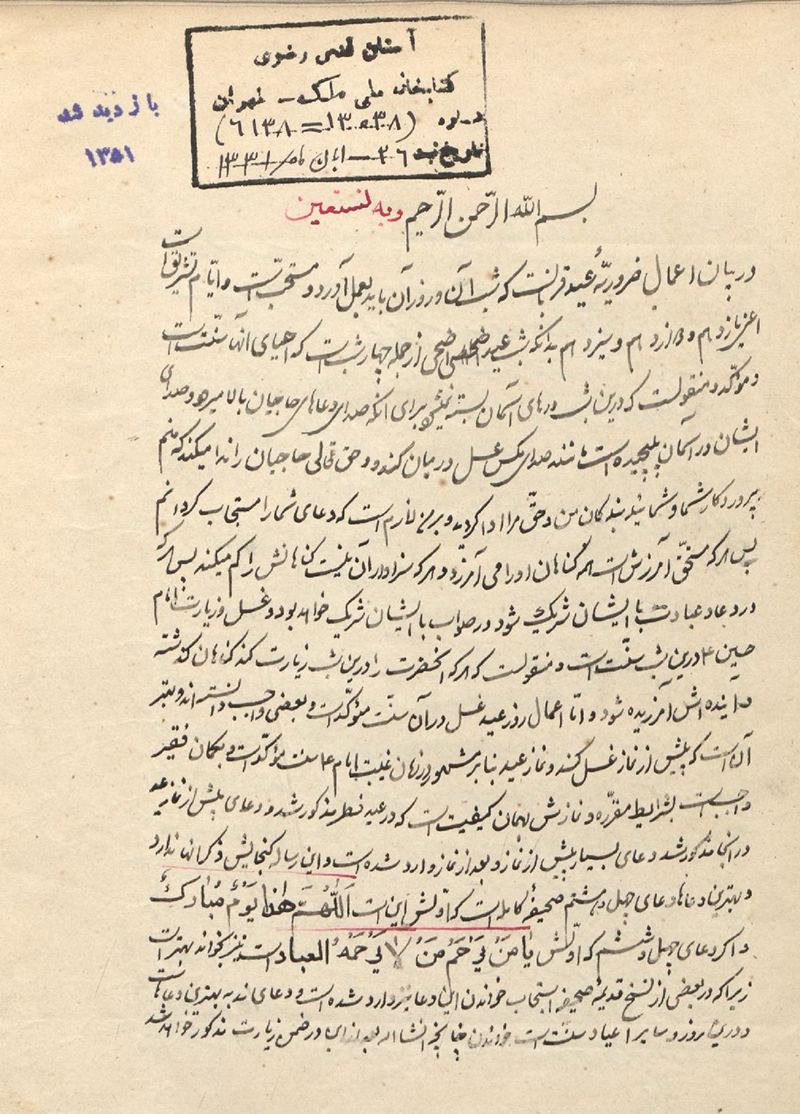 آستان قدس رضوی
کتابخانه ملی ملک - تهران
(۶۱۳۸ = ۱۳۰۳۸)
تاریخ ثبت ۲۶ - آبان ماه ۱۳۳۱
بازدید شد
۱۳۵۱
بسم الله الرّحمن الرّحیم وبه نستعین
در بیان اعمال ضروریهٔ عید قربانست که شب آن و روز آن باید بعمل آورد و مستحبّ است و ایّام تشریق است
اعنی یازدهم و دوازدهم و سیزدهم بدانکه شب عید اضحی از جمله چهار شبست که احیای آنها سنّت است
و مؤکّد و منقولست که درین شب درهای آسمان بسته نمیشود برای آنکه صدای دعاهای حاجیان بالا میرود و صدای
ایشان در آسمان پیچیده است مانند صدای مکس عسل در میان کندو و حق تعالی حاجیان را ندا میکند که منم
پروردکار شما و شمائید بندکان من و حقّ مرا ادا کردید و بر من لازم است که دعای شما را مستجاب کردانم
پس هر که مستحقّ آمرزش است همه کناهان او را می آمرزد و هر که سزاوار آن نیست کناهانش را کم میکند پس هر که
در دعا و عبادت با ایشان شریک شود در صواب با ایشان شریک خواهد بود و غسل و زیارت امام
حسین ۴ درین شب سنّت است و منقولست که هر که آنحضرت را درین شب زیارت کند کناهان کذشته
و آینده اش آمرزیده شود و امّا اعمال روز عید غسل در آن سنت مؤکّد است و بعضی واجب دانسته اند و بهتر
آن است که پیش از نماز غسل کنند و نماز عید بنابر مشهور در زمان غیبت امام ۴ سنت مؤکّد است و بکمان فقیر
واجب است بشرایط مقرّره و نمازش بهمان کیفیت است که در عید فطر مذکور شد و دعای پیش از نماز عید
در آنجا مذکور شد و دعای بسیار پیش از نماز و بعد از نماز وارد شده است و این رساله کنجایش ذکر آنها ندارد
و بهترین دعاها دعای چهل و هشتم صحیفهٔ کامله است که اولش این است اَللّهُمَّ هذا یَوْمٌ مُبارَکٌ
و اکر دعای چهل و ششم که اولش یا مَنْ یَرْحَمُ مَنْ لا یَرْحَمُهُ العباد است نیز بخواند بهتر است
زیرا که در بعضی از نسخ قدیمهٔ صحیفه استحباب خواندن این دعا نیز وارد شده است و دعای ندبه بهترین دعاهاست
و درین روز و سایر اعیاد سنّت است خواندن چنانچه انشاالله در ضمن زیارت مذکور خواهد شد